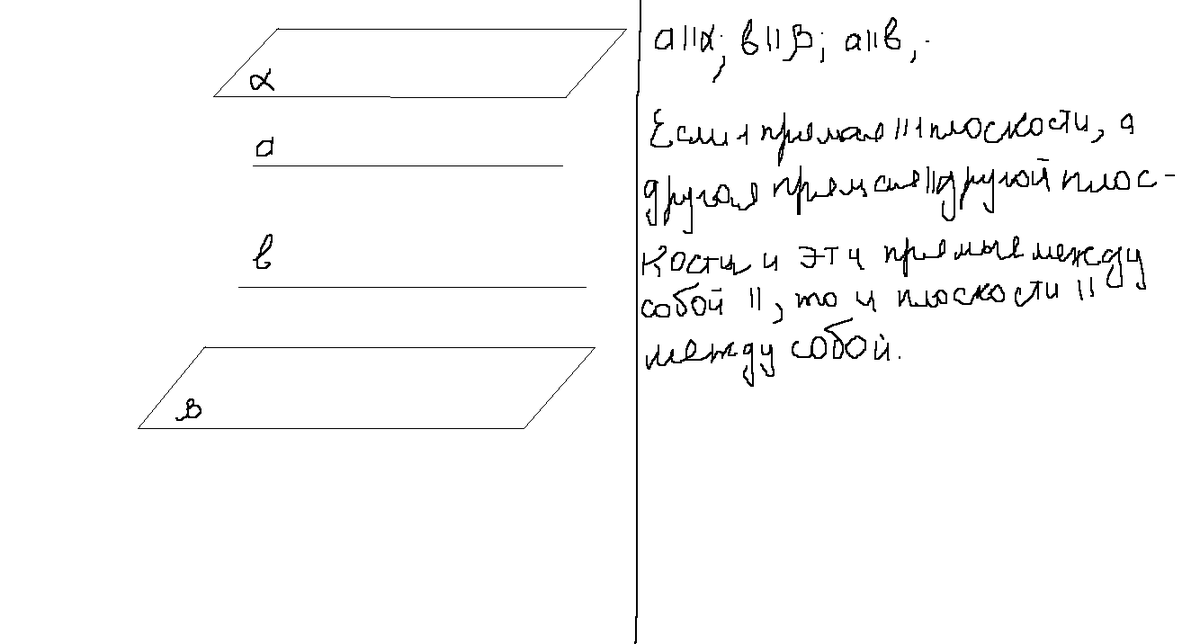 α
a
в
β
a||α; в||β; a||в,.
Если 1 прямая || 1 плоскости, а
другая прямая || другой плос-
кости и эти прямые между
собой ||, то и плоскости ||
между собой.